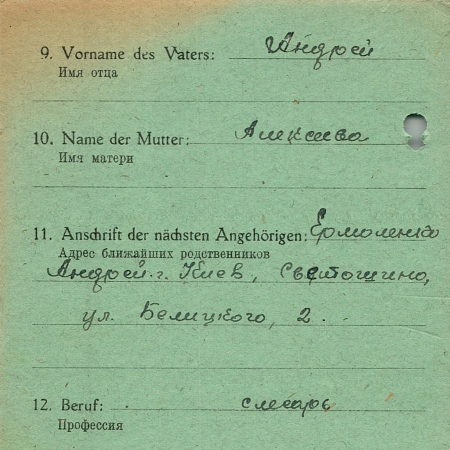 9. Vorname des Vaters: Андрей
Имя отца
10. Name der Mutter: Алексеева
Имя матери
11. Anschrift der nächsten Angehörigen: Ермоленко
Адрес ближайших родственников
Андрей. г. Киев, Святошино,
ул. Белицкого, 2.
12. Beruf: слесарь
Профессия